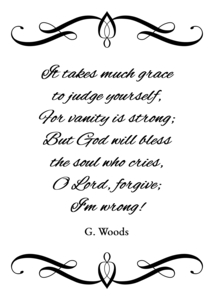 It takes much grace
to judge yourself,
For vanity is strong;
But God will bless
the soul who cries,
O Lord, forgive;
I'm wrong!
G. Woods